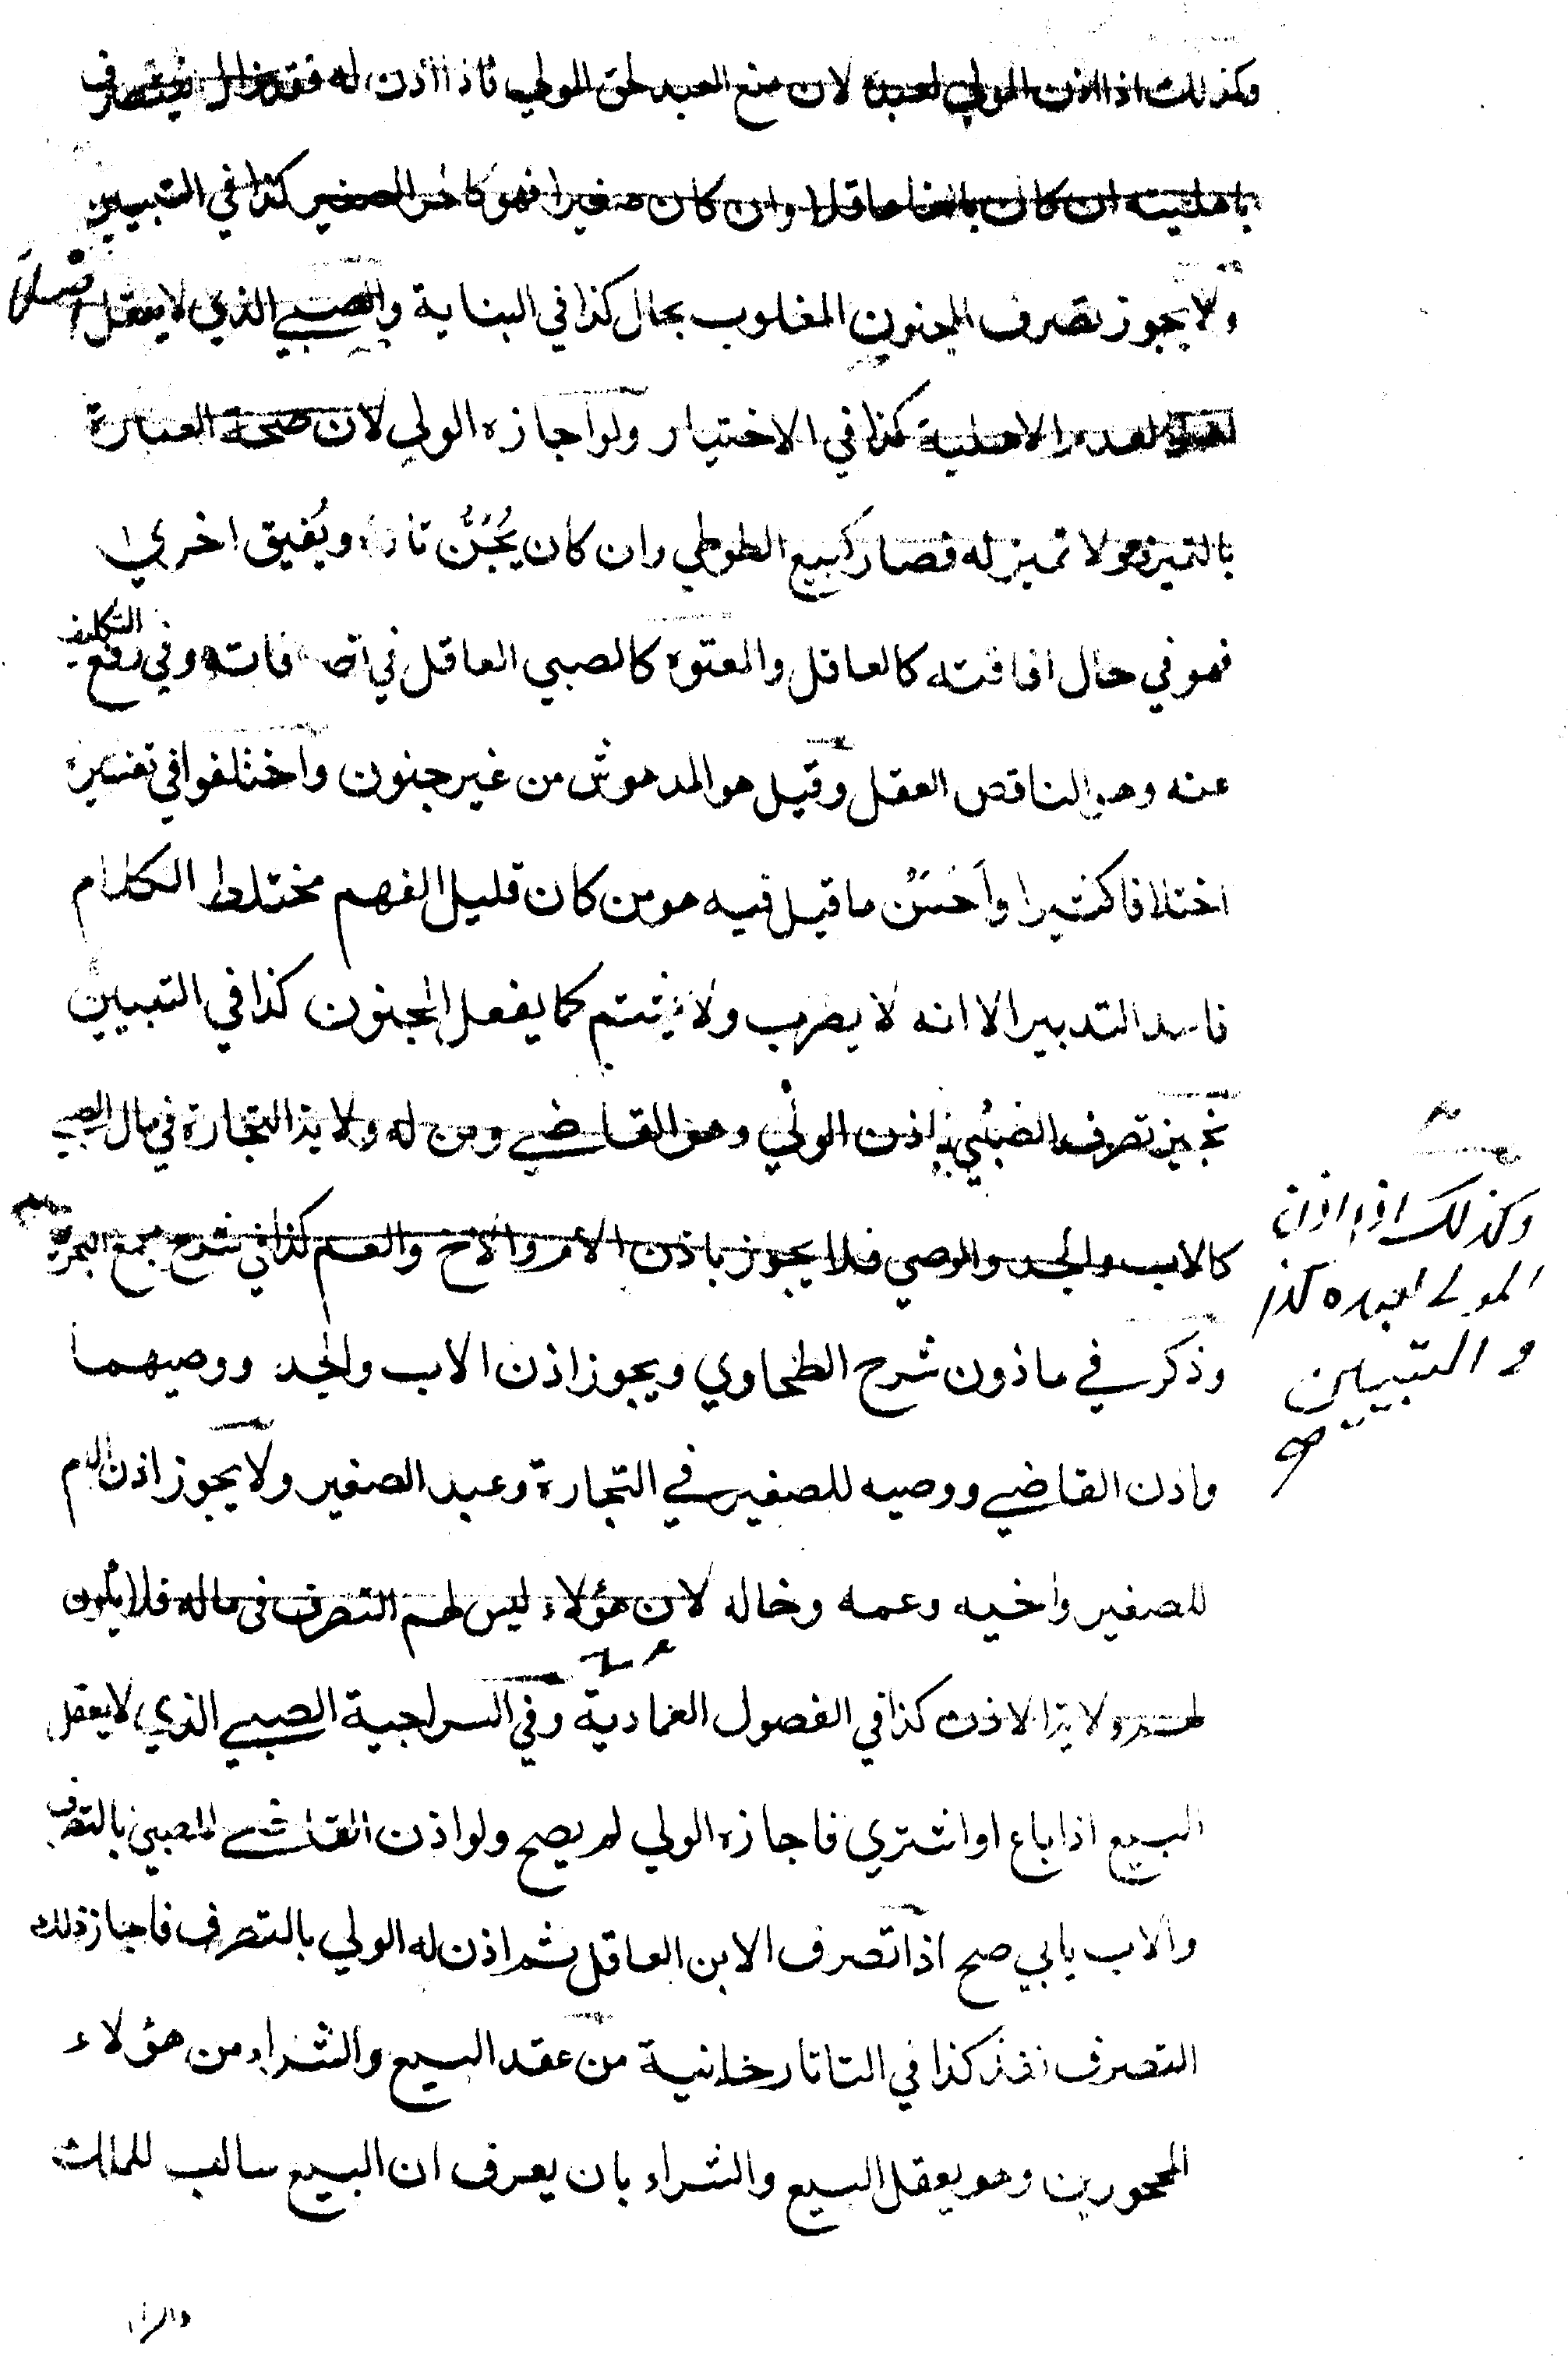 وكذلك اذا اذن المولي لعبده لان منع العبد لحق المولي فاذا اذن له فقد زال فيتصرف
باهليته ان كان بالغا عاقلا وان كان صغيرا فهو كالحر الصغير كذا في التبيين
ولا يجوز تصرف المجنون المغلوب بحال كذا في البناية والصبي الذي لا يعقل اصلا
لعدم الاهلية كذا في الاختيار ولو اجازه الولي لان صحة العبارة
بالتميز وهو لا تميز له فصار كبيع الطوطي وان كان يُجَنُّ تارة ويُفيق اخري
فهو في حال افاقته كالعاقل والمعتوه كالصبي العاقل في تصرفاته وفي رفع التكليف
عنه وهو الناقص العقل وقيل هو المدهوش من غير جنون واختلفوا في تفسيره
اختلافا كثيرا وأحسَنُ ما قيل فيه هو من كان قليل الفهم مختلط الكلام
فاسد التدبير الا انه لا يضرب ولا يشتم كما يفعل المجنون كذا في التبيين
تصرف الصبي باذن الولي وهو القاضي ومن له ولاية التجارة في مال الصبي
كالاب والجد والوصي فلا يجوز باذن الام والاخ والعم كذا في شرح مجمع البحرين
وذكر في ماذون شرح الطحاوي ويجوز اذن الاب والجد ووصيهما
واذن القاضي ووصيه للصغير في التجارة وعبد الصغير ولا يجوز اذن الام
للصغير واخيه وعمه وخاله لان هؤلاء ليس لهم التصرف في ماله فلا يكون
لهم ولاية الاذن كذا في الفصول العمادية وفي السراجية الصبي الذي لا يعقل
البيع اذا باع او اشتري فاجازه الولي لم يصح ولو اذن القاضي للصبي بالتصرف
والاب يابي صح اذا تصرف الابن العاقل ثم اذن له الولي بالتصرف فاجاز ذلك
التصرف نفذ كذا في التاتارخانية من عقد البيع والشراء من هؤلاء
المحجورين وهو يعقل البيع والشراء بان يعرف ان البيع سالب للملك
وكذلك اذا اذن
المولى لعبده كذا
في التبيين